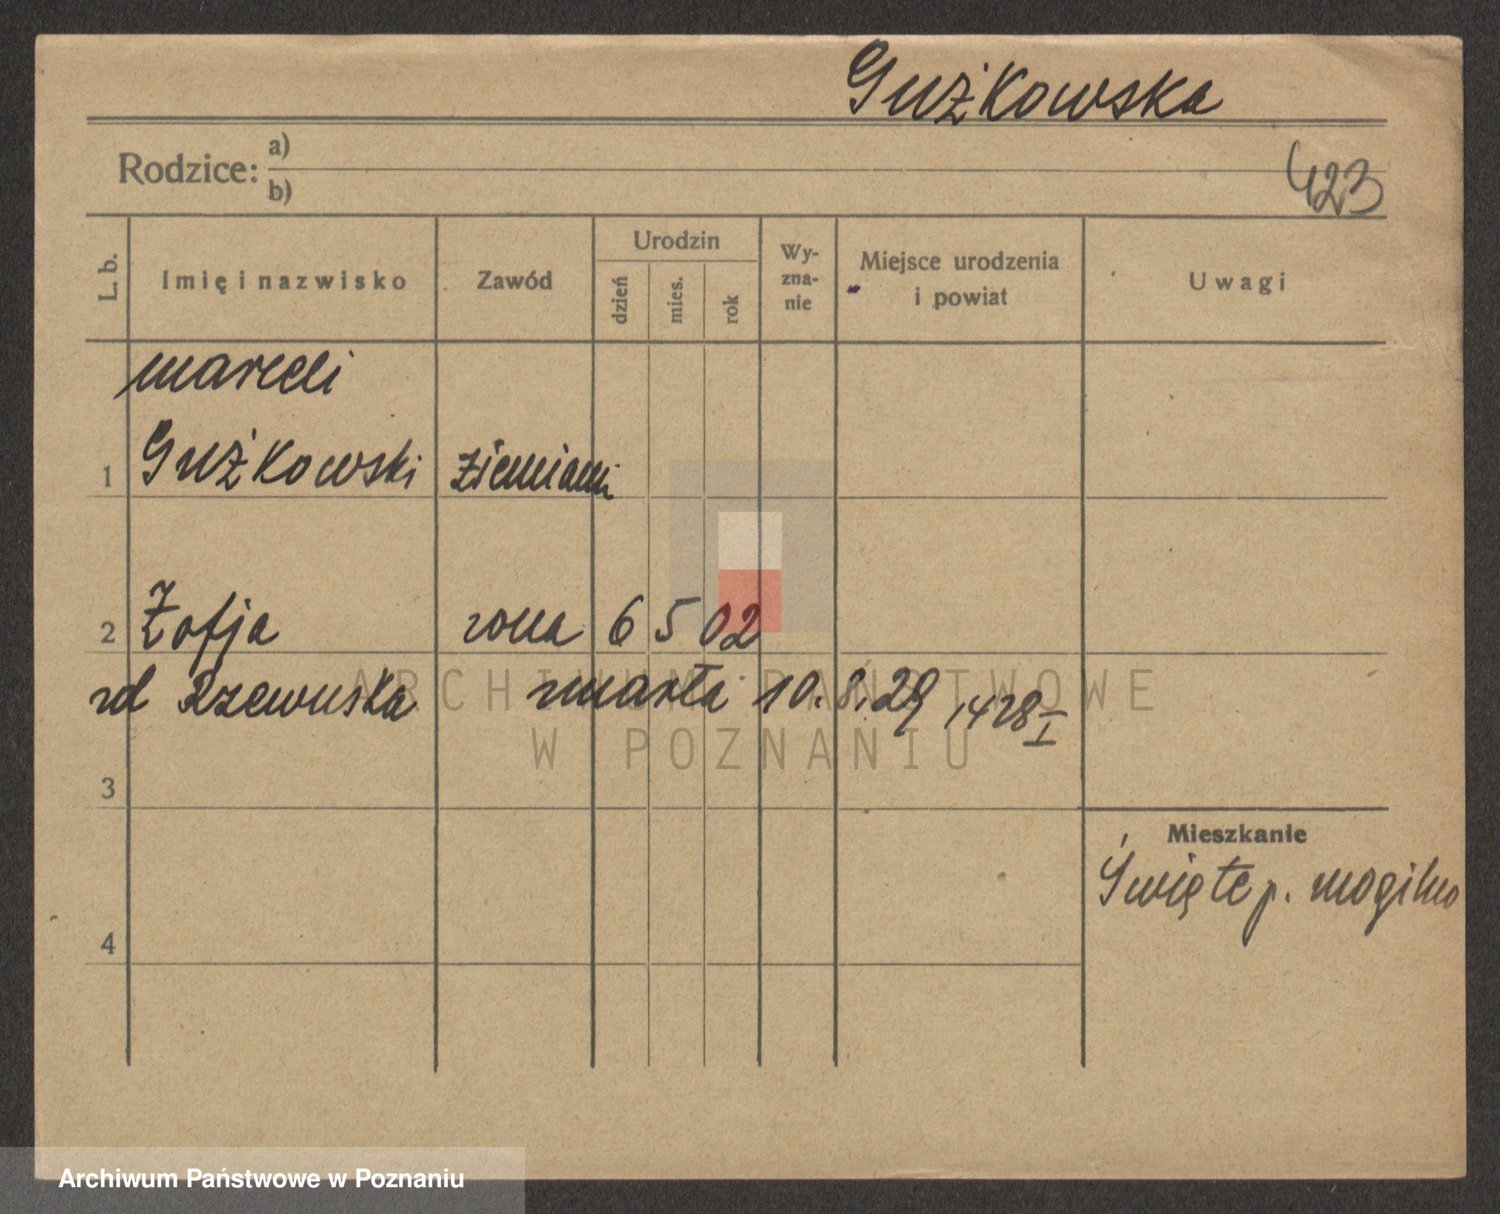 Gużkowska
Rodzice: a)
b)
423
L. b.
Imię i nazwisko
Zawód
Urodzin
dzień
mies.
rok
Wy-
zna-
nie
Miejsce urodzenia
i powiat
Uwagi
marceli
1 Gużkowski
2 Zofja żona 6 5 02
rd Rzewuska zmarła 10.8.29 1428 I
3
Mieszkanie
Święte p. mogilno
4
ARCHIWUM PAŃSTWOWE
W POZNANIU
Archiwum Państwowe w Poznaniu